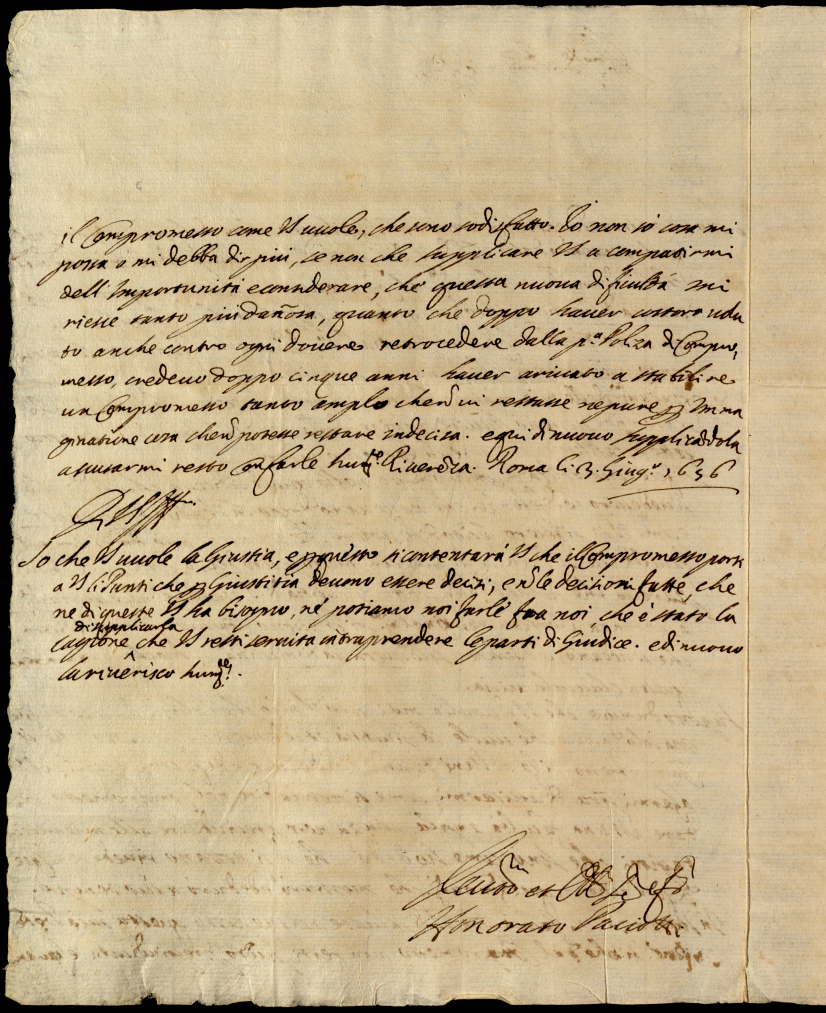 il Compromesso come VS vuole, che sono sodisfatto. Io non sò cosa mi
possa o mi debba dir più, se non che supplicare VS a compatirmi
dell'Importunità e considerare, che questa nuova dificultà mi
riesse tanto più dañosa, quanto che doppo haver costoro volu
to anche contro ogni dovere retrocedere dalla pª Poliza di Compro,
messo, credevo doppo cinque anni haver arivato a stabilire
un Compromesso tanto amplo che nõ vi restasse nepure per Imma
ginatione cosa che nõ potesse restare indecisa. e qui di nuovo supplicãdola
a scusarmi resto con farle hum.e Riverẽza. Roma li 3. Giugº 1656
So che VS vuole la Giustitia, e per questo si contentarà VS che il Compromesso porti
a VS li Punti che per Giustitia devono essere decisi, e nõ le decisioni fatte, che
nè di queste VS ha bisogno, nè potiamo noi farle fra noi, che è stato la
di supplicarla
cagione che VS resti servita intraprendere le parti di Giudice. e di nuovo
la riverisco hum.e.
Honorato Paciotti